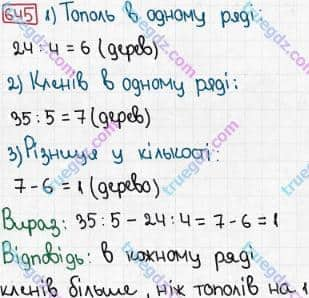 645 1) Тополь в одному ряді:
24 : 4 = 6 (дерев)
2) Кленів в одному ряді:
35 : 5 = 7 (дерев)
3) Різниця у кількості:
7 - 6 = 1 (дерево)
Вираз: 35 : 5 - 24 : 4 = 7 - 6 = 1
Відповідь: в кожному ряді
кленів більше, ніж тополів на 1